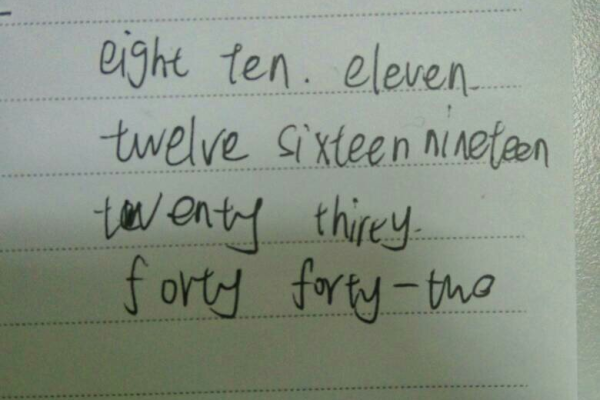 eight ten. eleven.
twelve sixteen nineteen
twenty thirty.
forty forty-two